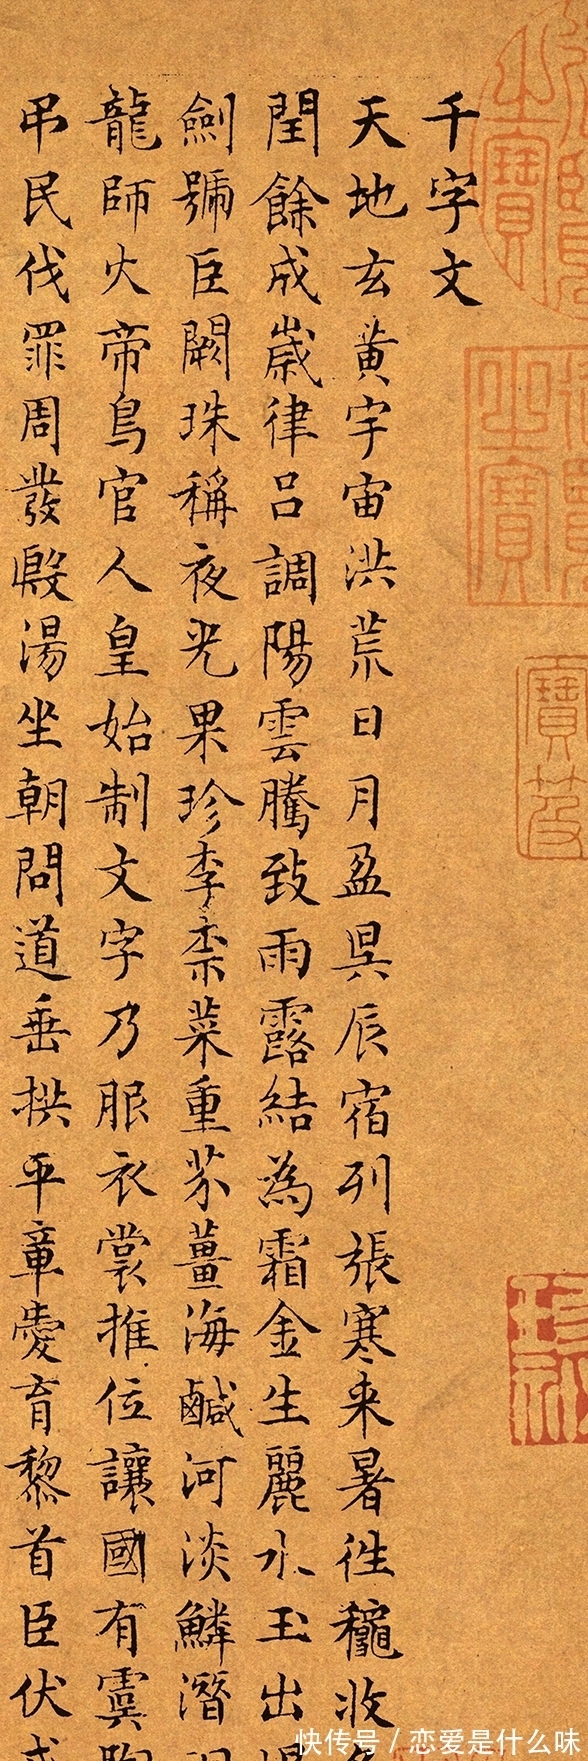 千字文
天地玄黄宇宙洪荒日月盈昃辰宿列張寒来暑徃穐收
閏餘成歲律呂調陽雲騰致雨露結為霜金生麗水玉出
劍號巨闕珠稱夜光果珍李柰菜重芥薑海鹹河淡鱗潛
龍師火帝鳥官人皇始制文字乃服衣裳推位讓國有虞
弔民伐罪周發殷湯坐朝問道垂拱平章愛育黎首臣伏
快传号 / 恋爱是什么味